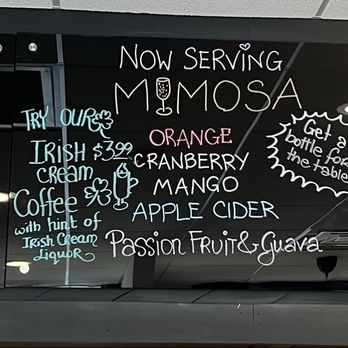 NOW SERVING
MIMOSA
ORANGE
CRANBERRY
MANGO
APPLE CIDER
Passion Fruit & Guava
TRY OUR
IRISH $3.99
CREAM
Coffee
with hint of
Irish Cream
Liquor
Get a
bottle for
the table